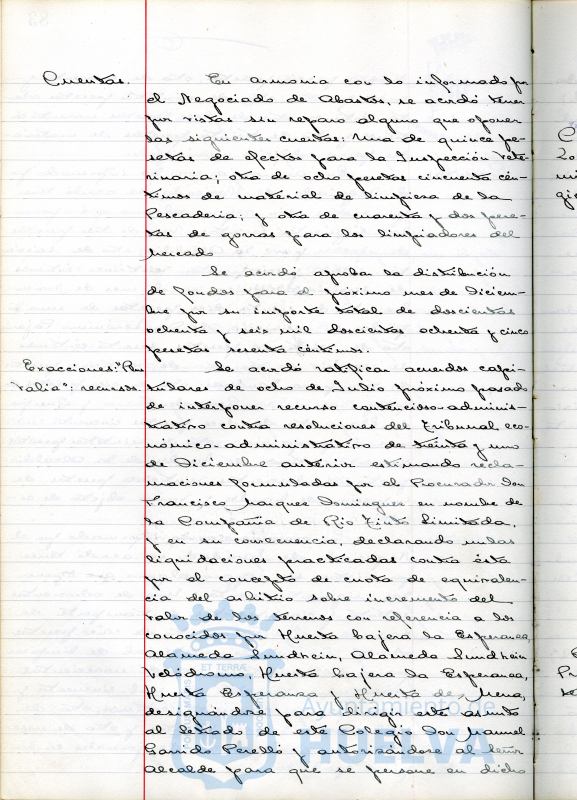 Cuentas. En armonia con lo informado por
el Negociado de Abastos, se acordó tener
por vistas sin reparo alguno que oponer
las siguientes cuentas: Una de quince pe-
setas de efectos para la Inspección Vete-
rinaria; otra de ocho pesetas cincuenta cén-
timos de material de limpieza de la
Pescaderia; y otra de cuarenta y dos pese-
tas de gorras para los limpiadores del
Mercado
Se acordó aprobar la distribución
de fondos para el próximo mes de Diciem-
bre por su importe total de doscientas
ochenta y seis mil doscientas ochenta y cinco
pesetas sesenta céntimos.
Exacciones: "Plus Se acordó ratificar acuerdos capi-
Valia": recursos. tulares de ocho de Julio próximo pasado
de interponer recurso contencioso-adminis-
trativo contra resoluciones del Tribunal eco-
nómico-administrativo de treinta y uno
de Diciembre anterior estimando recla-
maciones formuladas por el Procurador Don
Francisco Marquez Dominguez en nombre de
la Compañia de Rio Tinto Limitada,
y en su consecuencia, declarando nulas
liquidaciones practicadas contra ésta
por el concepto de cuota de equivalen-
cia del arbitrio sobre incremento del
valor de los terrenos con referencia a los
conocidos por Huerta bajera la Esperanza,
Alameda Sundhein, Alameda Sundhein
Velódromo, Huerta bajera la Esperanza,
Huerta Esperanza y Huerta de Mena,
designándose para dirigir este asunto
al letrado de este Colegio Don Manuel
Garrido Perelló y autorizándose al Señor
Alcalde para que se persone en dicho
Ayuntamiento de
HUELVA